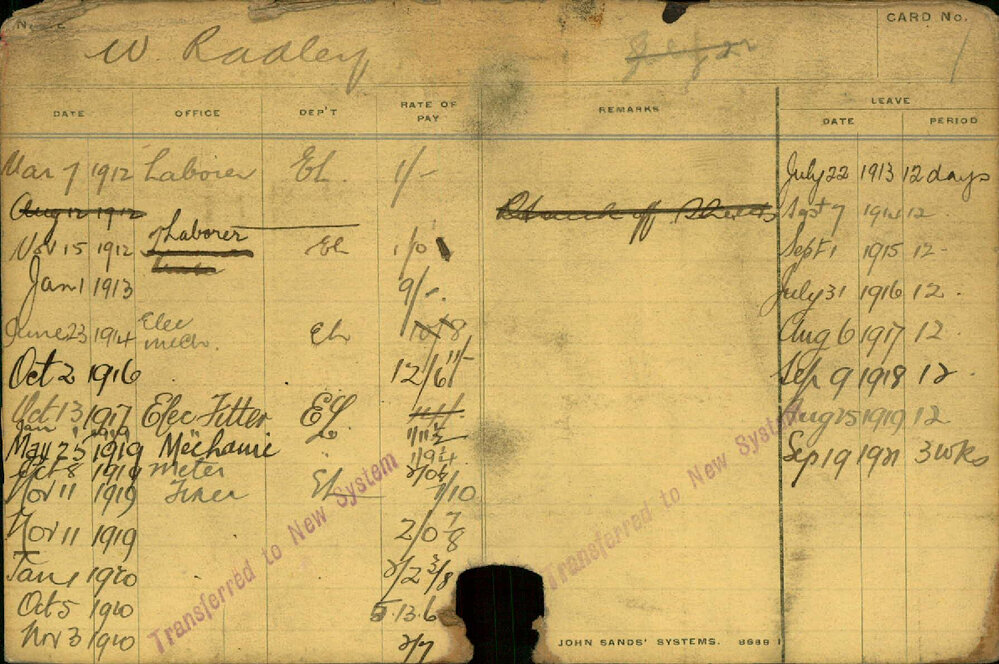 W. Radley
CARD No. 1
DATE OFFICE DEP'T RATE OF PAY REMARKS LEAVE
DATE PERIOD
Mar 7 1912 Laborer EL. 1/- July 22 1913 12 days
Aug 12 1912 Sept 7 1914 12
Nov 15 1912 Laborer EL Sept 1 1915 12
Jan 1 1913 9/- July 31 1916 12
June 23 1914 Elec Mech. EL Aug 6 1917 12
Oct 2 1916 12/6 Sep 9 1918 12
Oct 13 1917 Elec Fitter EL Aug 25 1919 12
May 25 1919 Mechanic Sep 19 1921 3 wks
Oct 8 1919 Meter
Nov 11 1919 Fixer EL 1/10
Nov 11 1919 2/0 7/8
Jan 1 1920 2/2 3/8
Oct 5 1920 5.13.6
Nov 3 1920 2/7
Transferred to New System
Transferred to New System
JOHN SANDS' SYSTEMS.